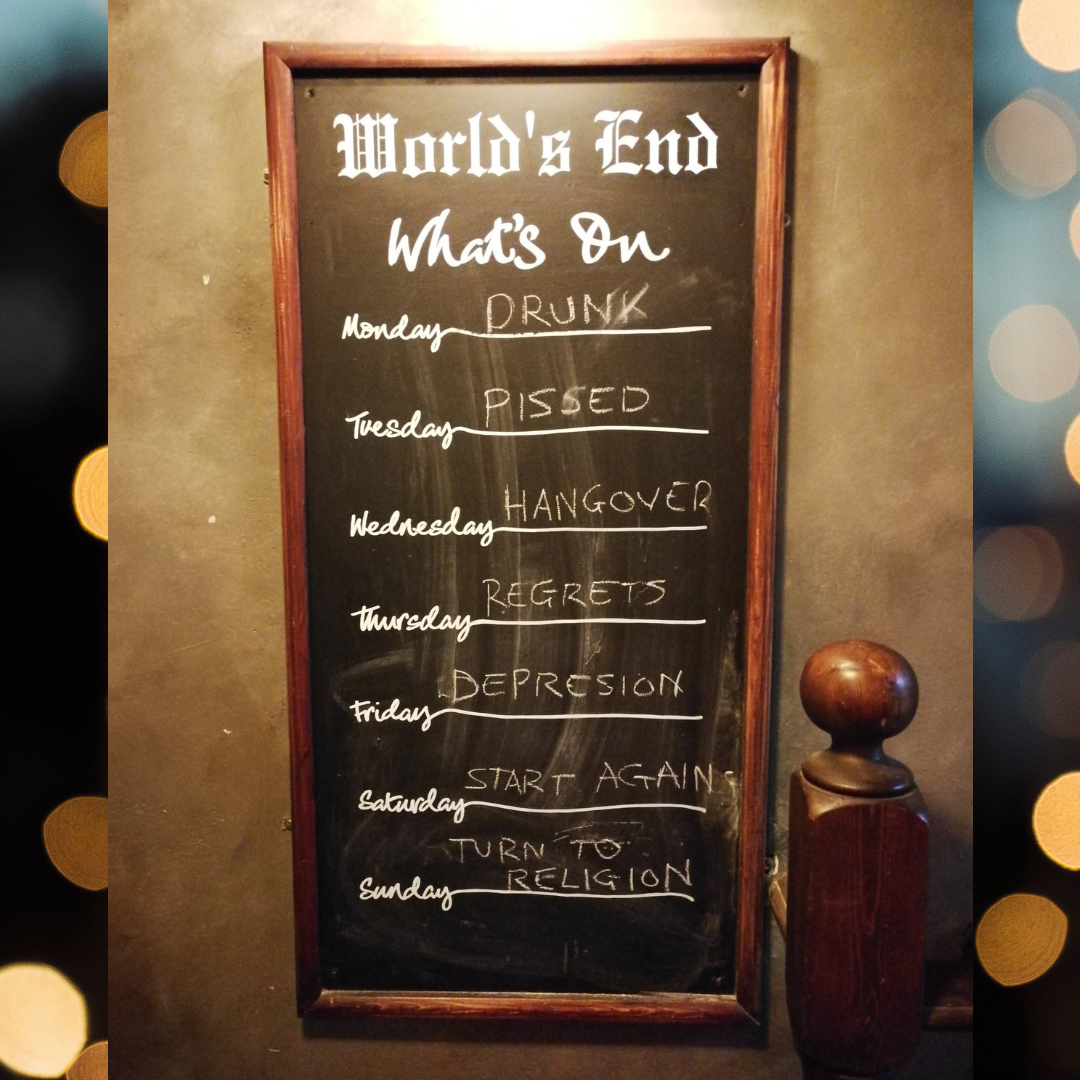 World's End
What's On
Monday DRUNK
Tuesday PISSED
Wednesday HANGOVER
Thursday REGRETS
Friday DEPRESION
Saturday START AGAIN
TURN TO
Sunday RELIGION